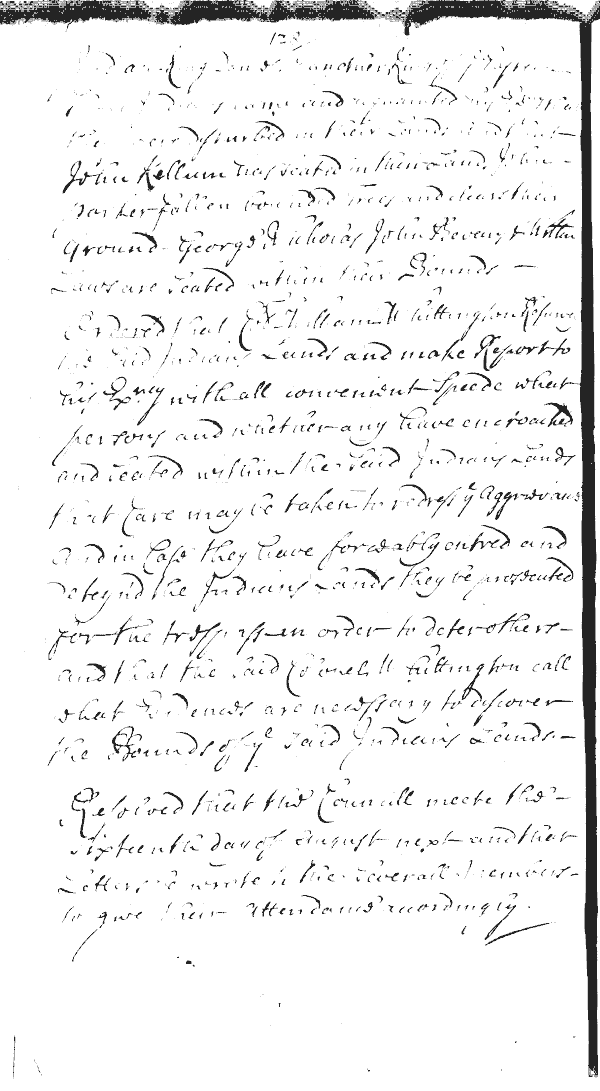 128
came and acquainted
disturbed in their Lands and that
John Kellum has seated in their Land, John
Parker fallen bounded trees and cleare their
Ground George Nicholas John Bevens &
Laws are seated within their Bounds
Ordered that Coll William Whittington Resurvey
the said Indians Lands and make Report to
his Exncy with all convenient speede what
persons and whether any have encroached
and seated within the said Indians Lands
that Care may be taken to redress ye Aggrievans
And in Case they have forceably entred and
deteyn'd the Indians Lands they be prosecuted
for the trespass in order to deter others
and that the said Colonel Whittington call
what Evidences are necessary to discover
the Bounds of ye said Indians Lands
Resolved that the Councill meete the
Sixteenth day of August next and that
Letters be wrote to the severall Members
to give their attendance accordingly.